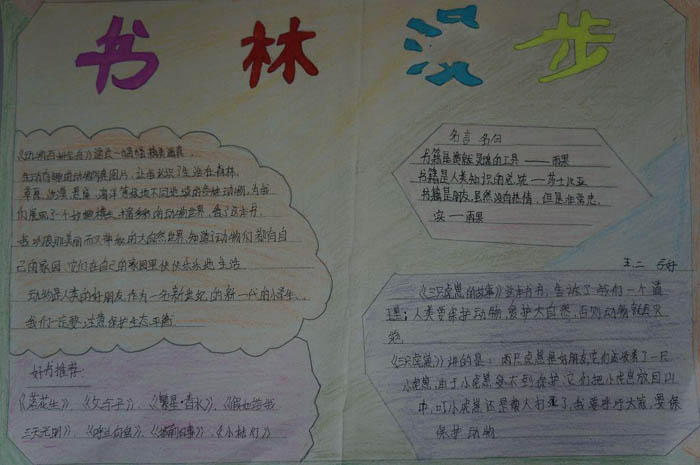 书林汉步
《动物百科全书》
生动有趣的动物 图片，让我认识了生活在森林、
草原、沙漠、 海洋等 不同 的各种动物，为我
们展现了一个 的动物世界，看了这本书，
美丽而又神秘的大自然世界，知道了动物们都有自
己的家园，它们在自己的家园里快快乐乐地生活。
动物是人类的好朋友，作为一名新世纪的新一代的小学生，
我们一定要注意保护生态平衡
好书推荐：
《落花生》、《父与子》、《繁星·春水》、《假如给我
三天光明》、《呼兰河传》、《 故事》、《小桔灯》
名言名句
书籍是 灵魂的工具 —— 雨果
书籍是人类知识的总统 —— 莎士比亚
书籍是朋友，虽然没有热情，但是非常忠
实 —— 雨果
王二
《三只虎崽的故事》这本书，告诉了我们一个道
理：人类要保护动物，爱护大自然，否则动物就会灭
《三只虎崽》讲的是：两只虎崽是好朋友，它们 一只
小虎崽，由于小虎崽受不到保护，它们把小虎崽放回山
中，可小虎崽还是被人打 了，我要呼吁大家，要保
保护动物